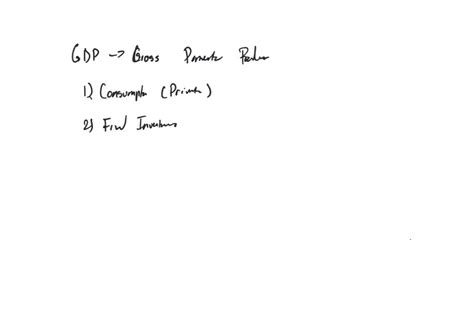 GDP -> Gross Domestic Product
1) Consumption (Private)
2) Investment